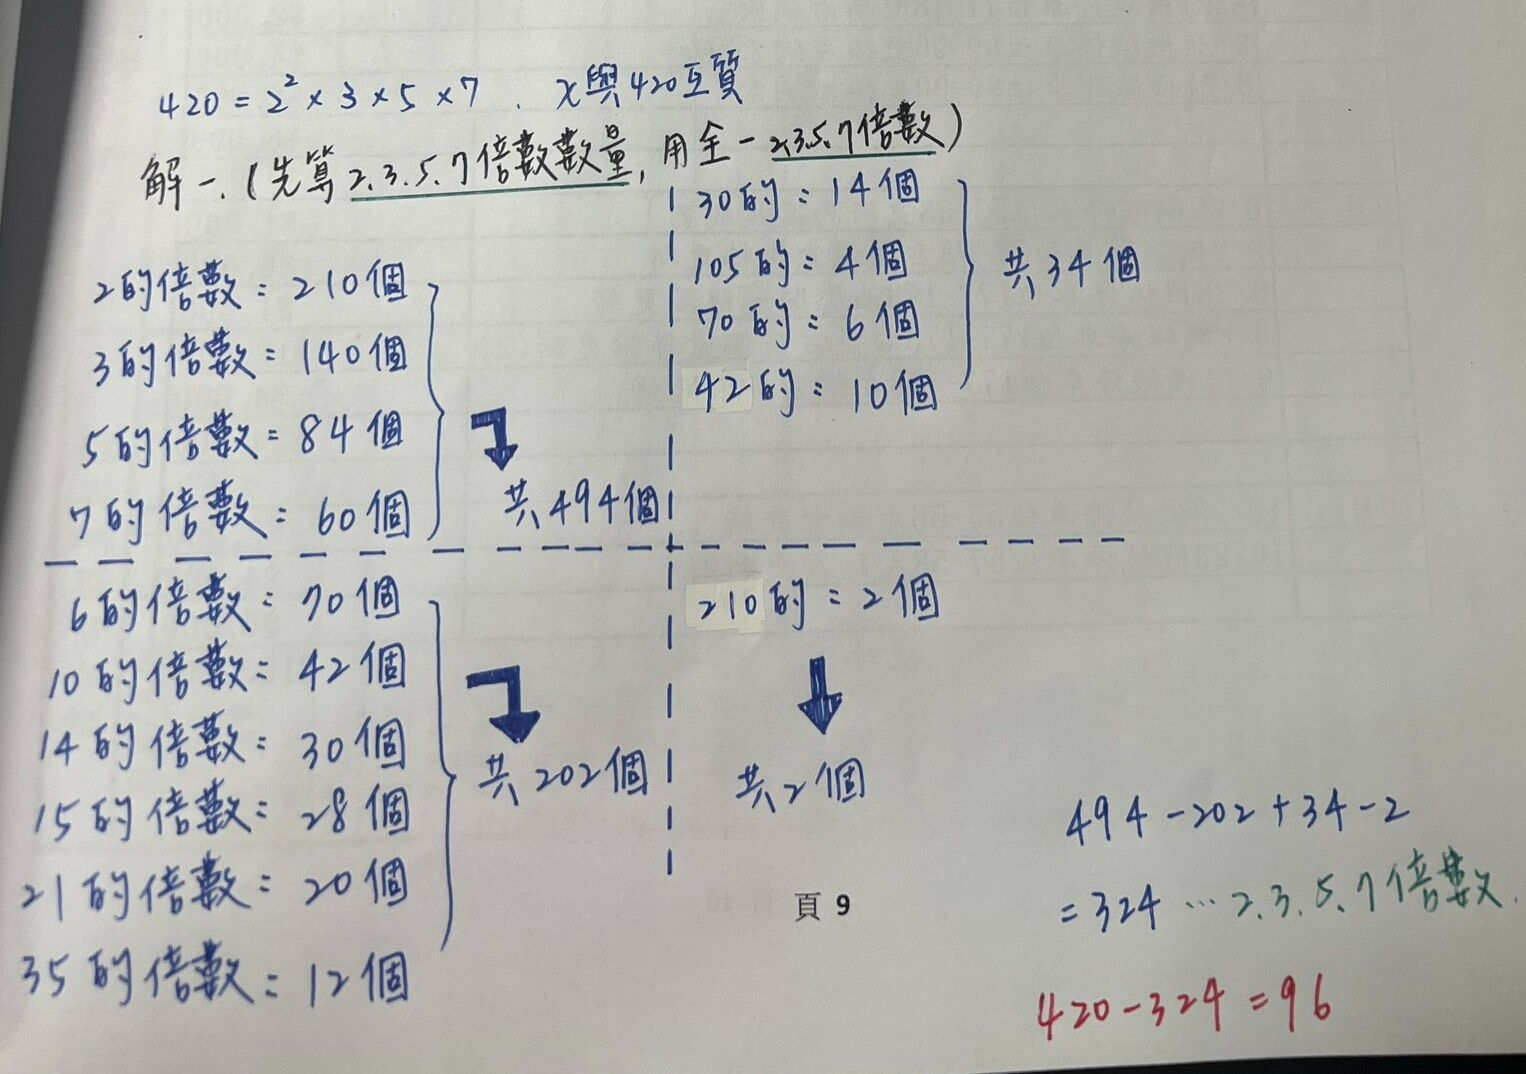 420 = 2² × 3 × 5 × 7 . x與420互質
解一.(先算2.3.5.7倍數數量, 用全-2.3.5.7倍數)
2的倍數: 210個
3的倍數: 140個
5的倍數: 84個
7的倍數: 60個
共494個
6的倍數: 70個
10的倍數: 42個
14的倍數: 30個
15的倍數: 28個
21的倍數: 20個
35的倍數: 12個
共202個
30的: 14個
105的: 4個
70的: 6個
42的: 10個
共34個
210的: 2個
共2個
494-202+34-2
=324 ...2.3.5.7倍數.
420-324=96
頁 9